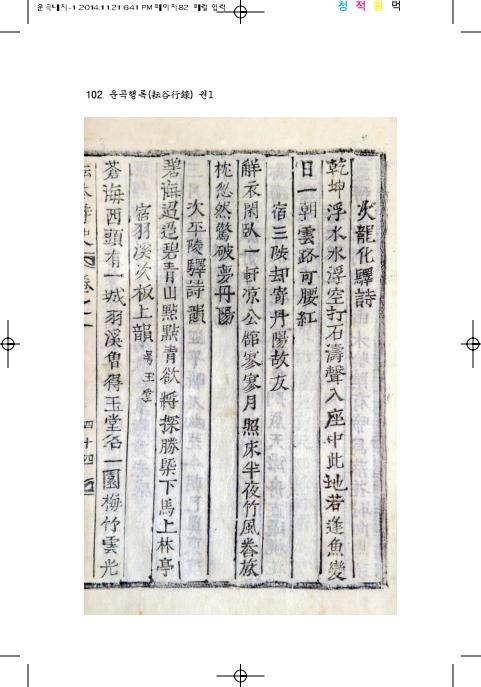 운곡내지-1 2014.11.21 6:41 PM 페이지82 매일 입력
청 적 황 먹
102 운곡행록(耘谷行錄) 권1
次龍化驛詩
乾坤浮水水浮空打石濤聲入座中此地若逢魚變
日一朝雲路可腰紅
宿三陟却寄丹陽故友
解衣閑臥一軒凉公館寥寥月照床半夜竹風眷旅
枕忽然驚破夢丹陽
次平陵驛詩韻
碧海迢迢碧青山點點青欲將探勝槩下馬上林亭
宿羽溪次板上韻 号玉堂
蒼海西頭有一城羽溪曾得玉堂名一園梅竹雲光
四十四